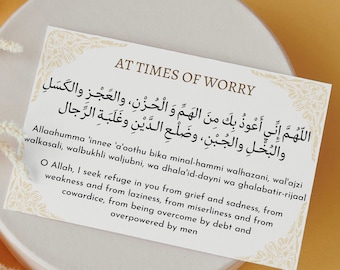 AT TIMES OF WORRY
اللّهُمَّ إِنِّي أَعْوذُ بِكَ مِنَ الهَمِّ وَ الْحُزْنِ، والعَجْزِ والكَسَلِ
والبُخْلِ والجُبْنِ، وضَلْعِ الدَّيْنِ وغَلَبَةِ الرِّجال
Allaahumma 'innee 'a'oothu bika minal-hammi walhazani, wal'ajzi
walkasali, walbukhli waljubni, wa dhala'id-dayni wa ghalabatir-rijaal
O Allah, I seek refuge in you from grief and sadness, from
weakness and from laziness, from miserliness and from
cowardice, from being overcome by debt and
overpowered by men